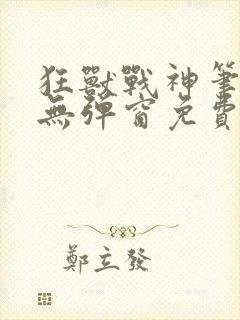 狂獸戰神筆
無彈窗免費
鄭立發